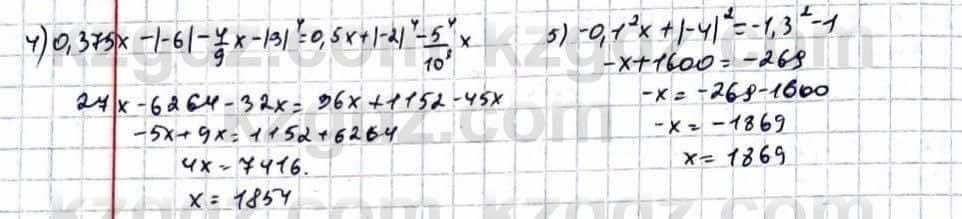 4) 0,375x - |-6| - 4/9 x - |3|⁴ = 0,5x + |-2|⁴ - 5⁴/10³ x
27x - 6264 - 32x = 36x + 1152 - 45x
-5x + 9x = 1152 + 6264
4x = 7416.
x = 1854
5) -0,1²x + |-4|² = -1,3² - 1
-x + 1600 = -269
-x = -269 - 1600
-x = -1869
x = 1869